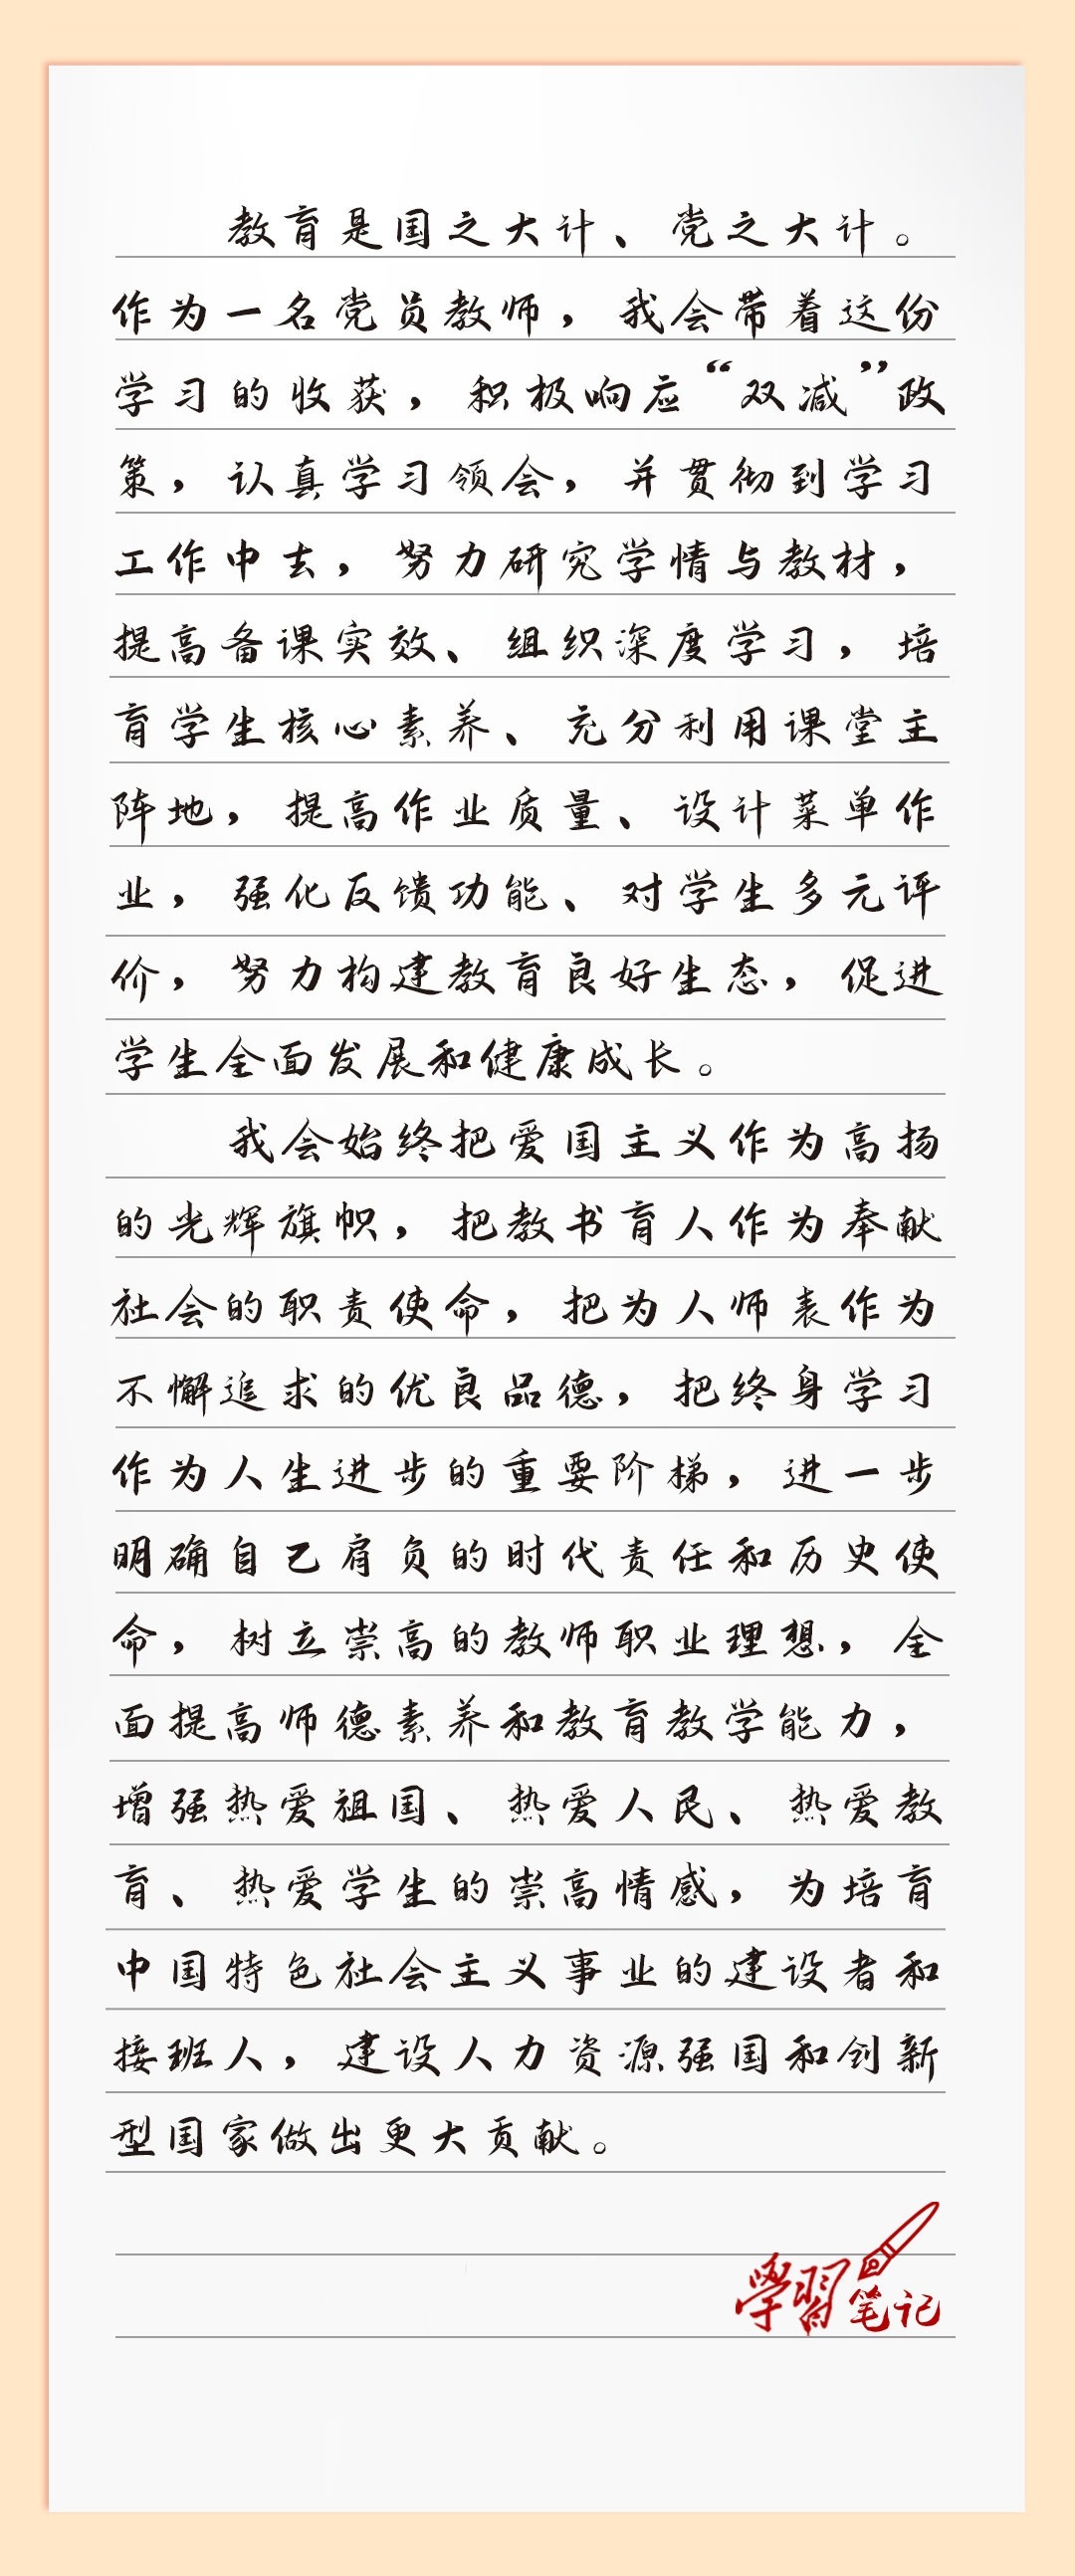 教育是国之大计、党之大计。
作为一名党员教师，我会带着这份
学习的收获，积极响应“双减”政
策，认真学习领会，并贯彻到学习
工作中去，努力研究学情与教材，
提高备课实效、组织深度学习，培
育学生核心素养、充分利用课堂主
阵地，提高作业质量、设计菜单作
业，强化反馈功能、对学生多元评
价，努力构建教育良好生态，促进
学生全面发展和健康成长。
我会始终把爱国主义作为高扬
的光辉旗帜，把教书育人作为奉献
社会的职责使命，把为人师表作为
不懈追求的优良品德，把终身学习
作为人生进步的重要阶梯，进一步
明确自己肩负的时代责任和历史使
命，树立崇高的教师职业理想，全
面提高师德素养和教育教学能力，
增强热爱祖国、热爱人民、热爱教
育、热爱学生的崇高情感，为培育
中国特色社会主义事业的建设者和
接班人，建设人力资源强国和创新
型国家做出更大贡献。
學習笔记